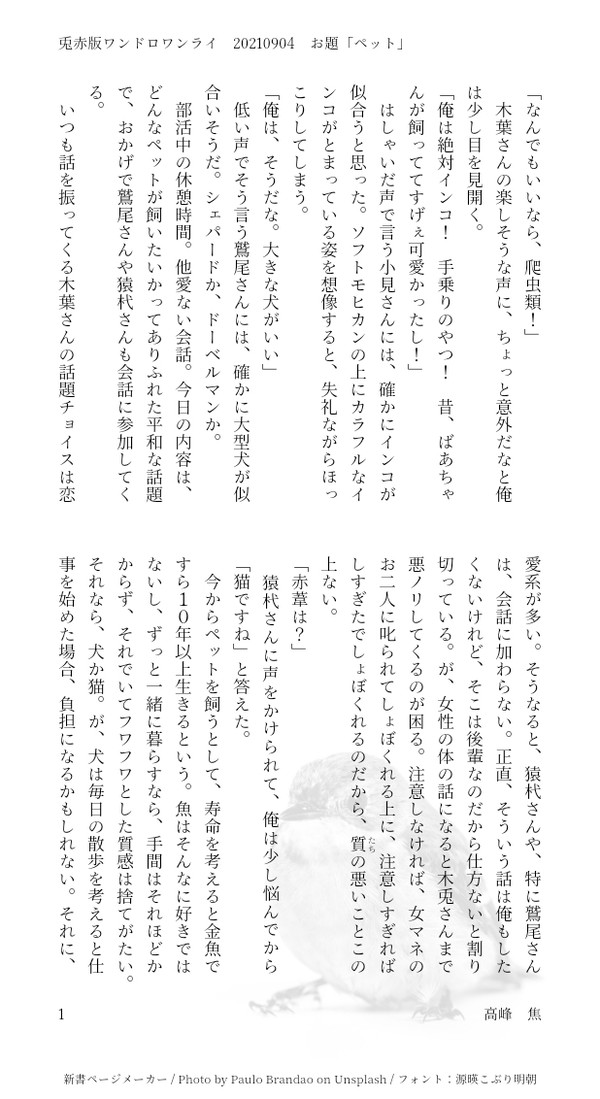 兎赤版ワンドロワンライ　20210904　お題「ペット」
「なんでもいいなら、爬虫類！」
　木葉さんの楽しそうな声に、ちょっと意外だなと俺
は少し目を見開く。
「俺は絶対インコ！　手乗りのやつ！　昔、ばあちゃ
んが飼っててすげぇ可愛かったし！」
　はしゃいだ声で言う小見さんには、確かにインコが
似合うと思った。ソフトモヒカンの上にカラフルなイ
ンコがとまっている姿を想像すると、失礼ながらほっ
こりしてしまう。
「俺は、そうだな。大きな犬がいい」
　低い声でそう言う鷲尾さんには、確かに大型犬が似
合いそうだ。シェパードか、ドーベルマンか。
　部活中の休憩時間。他愛ない会話。今日の内容は、
どんなペットが飼いたいかってありふれた平和な話題
で、おかげで鷲尾さんや猿杙さんも会話に参加してく
る。
　いつも話を振ってくる木葉さんの話題チョイスは恋
愛系が多い。そうなると、猿杙さんや、特に鷲尾さん
は、会話に加わらない。正直、そういう話は俺もした
くないけれど、そこは後輩なのだから仕方ないと割り
切っている。が、女性の体の話になると木兎さんまで
悪ノリしてくるのが困る。注意しなければ、女マネの
お二人に叱られてしょぼくれる上に、注意しすぎれば
しすぎたでしょぼくれるのだから、質たちの悪いことこの
上ない。
「赤葦は？」
　猿杙さんに声をかけられて、俺は少し悩んでから
「猫ですね」と答えた。
　今からペットを飼うとして、寿命を考えると金魚で
すら１０年以上生きるという。魚はそんなに好きでは
ないし、ずっと一緒に暮らすなら、手間はそれほどか
からず、それでいてフワフワとした質感は捨てがたい。
それなら、犬か猫。が、犬は毎日の散歩を考えると仕
事を始めた場合、負担になるかもしれない。それに、
1
高峰　焦
新書ページメーカー / Photo by Paulo Brandao on Unsplash / フォント：源暎こぶり明朝